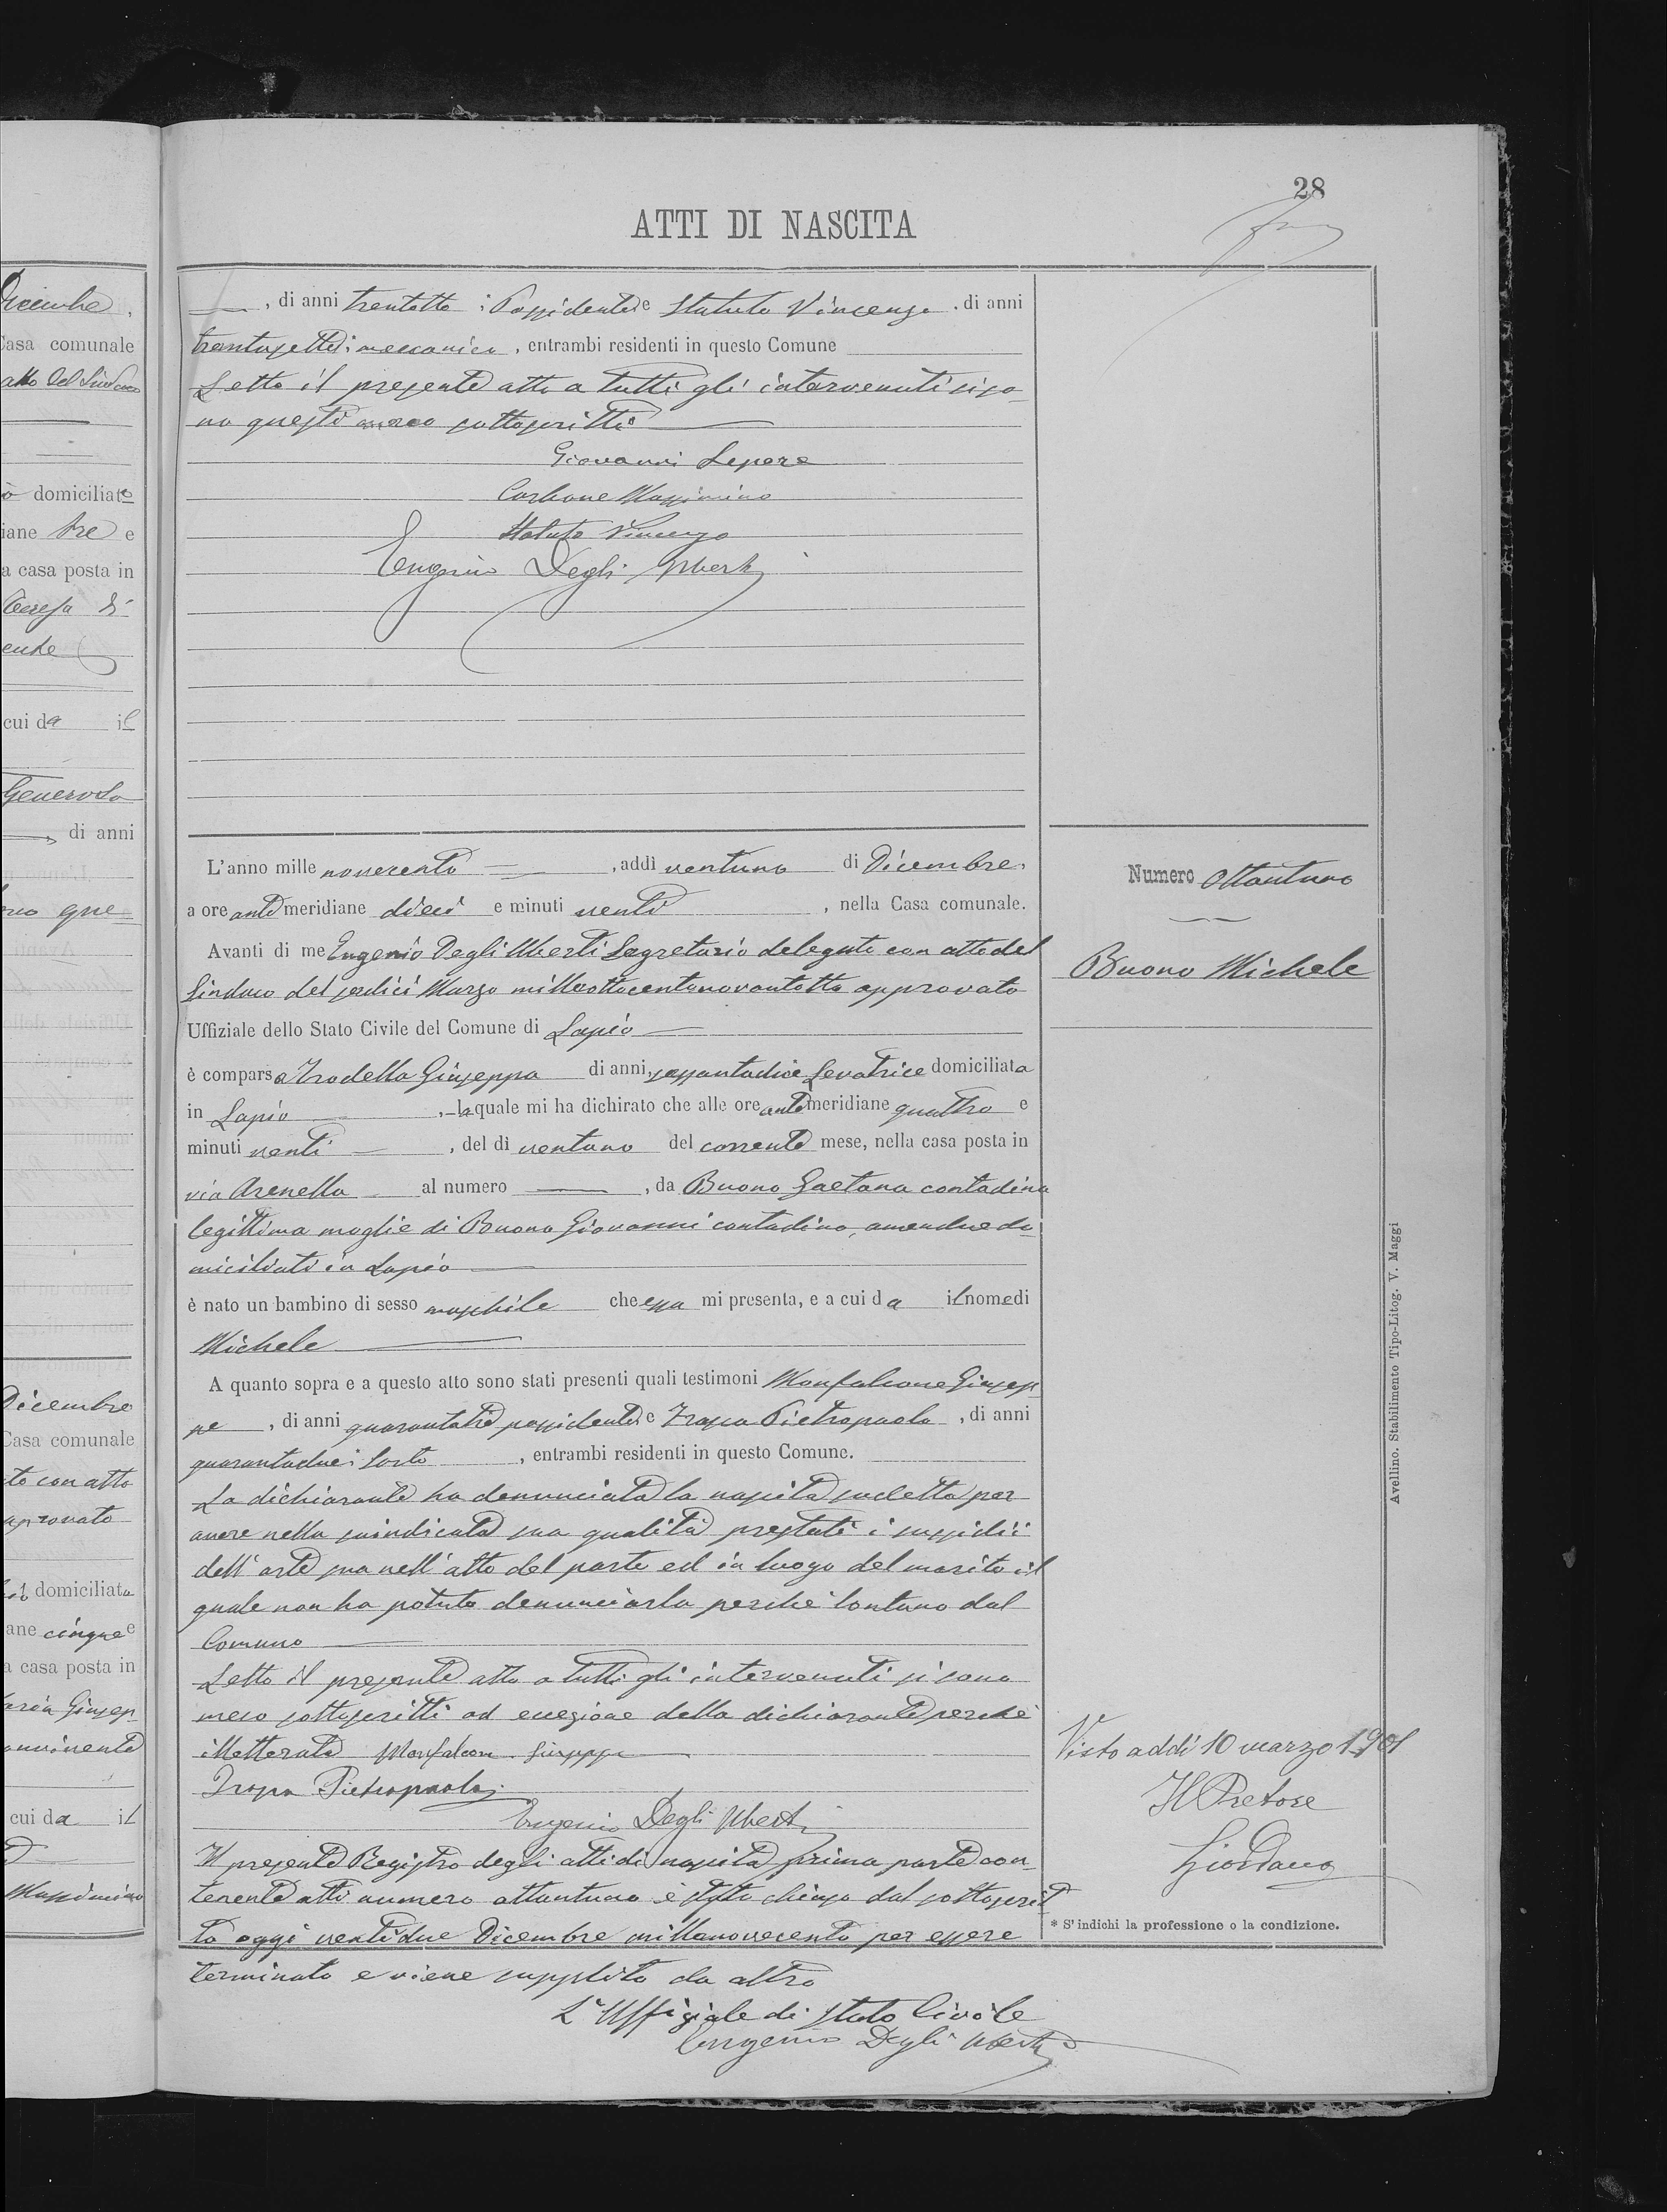 Dicembre,
Casa comunale
atto del Sindaco
ò domiciliato
iane tre e
a casa posta in
Teresa di
cui da il
Generosa
, di anni
que
Dicembre
Casa comunale
to con atto
approvato
domiciliata
ane cinque e
a casa posta in
aria Giusep
cui da il
Massimino
28
ATTI DI NASCITA
, di anni trentotto; Possidente e Statuto Vincenzo, di anni
trentasette; meccanico, entrambi residenti in questo Comune
Letto il presente atto a tutti gli intervenuti si so-
no questi meco sottoscritti
Giovanni Lepore
Carbone Massimino
Statuto Vincenzo
Eugenio Degli Uberti
L'anno mille novecento, addì ventuno di Dicembre,
a ore antimeridiane dieci e minuti venti, nella Casa comunale.
Avanti di me Eugenio Degli Uberti Segretario delegato con atto del
Sindaco del sedici Marzo milleottocentonovantotto approvato
Uffiziale dello Stato Civile del Comune di Lapio
è comparsa Trodella Giuseppa di anni sessantadue Levatrice domiciliata
in Lapio, la quale mi ha dichirato che alle ore antimeridiane quattro e
minuti venti, del dì ventuno del corrente mese, nella casa posta in
via Arenella al numero , da Buono Gaetana contadina
legittima moglie di Buono Giovanni contadino, amendue do-
miciliati in Lapio
è nato un bambino di sesso maschile che essa mi presenta, e a cui da il nome di
Michele
A quanto sopra e a questo atto sono stati presenti quali testimoni Monfalcone Giusep
pe, di anni quarantatre possidente e Trapa Pietropaolo, di anni
quarantadue; Sarto, entrambi residenti in questo Comune.
La dichiarante ha denunciata la nascita sudetta per
avere nella suindicata sua qualità prestati i sussidii
dell'arte sua nell'atto del parto ed in luogo del marito il
quale non ha potuto denunciarla perchè lontano dal
Comune
Letto il presente atto a tutti gli intervenuti si sono
meco sottoscritti ad eccezione della dichiarante perchè
illetterata Monfalcone Giuseppe
Trapa Pietropaolo
Eugenio Degli Uberti
Il presente Registro degli atti di nascita prima parte con-
tenente atti numero ottantuno è stato chiuso dal sottoscrit
to oggi ventidue Dicembre millenovecento per essere
terminato e viene supplito da altro
L'Uffiziale di Stato Civile
Eugenio Degli Uberti
Numero Ottantuno
Buono Michele
Visto addì 10 marzo 1901
Il Pretore
Giordano
* S'indichi la professione o la condizione.
Avellino. Stabilimento Tipo-Litog. V. Maggi